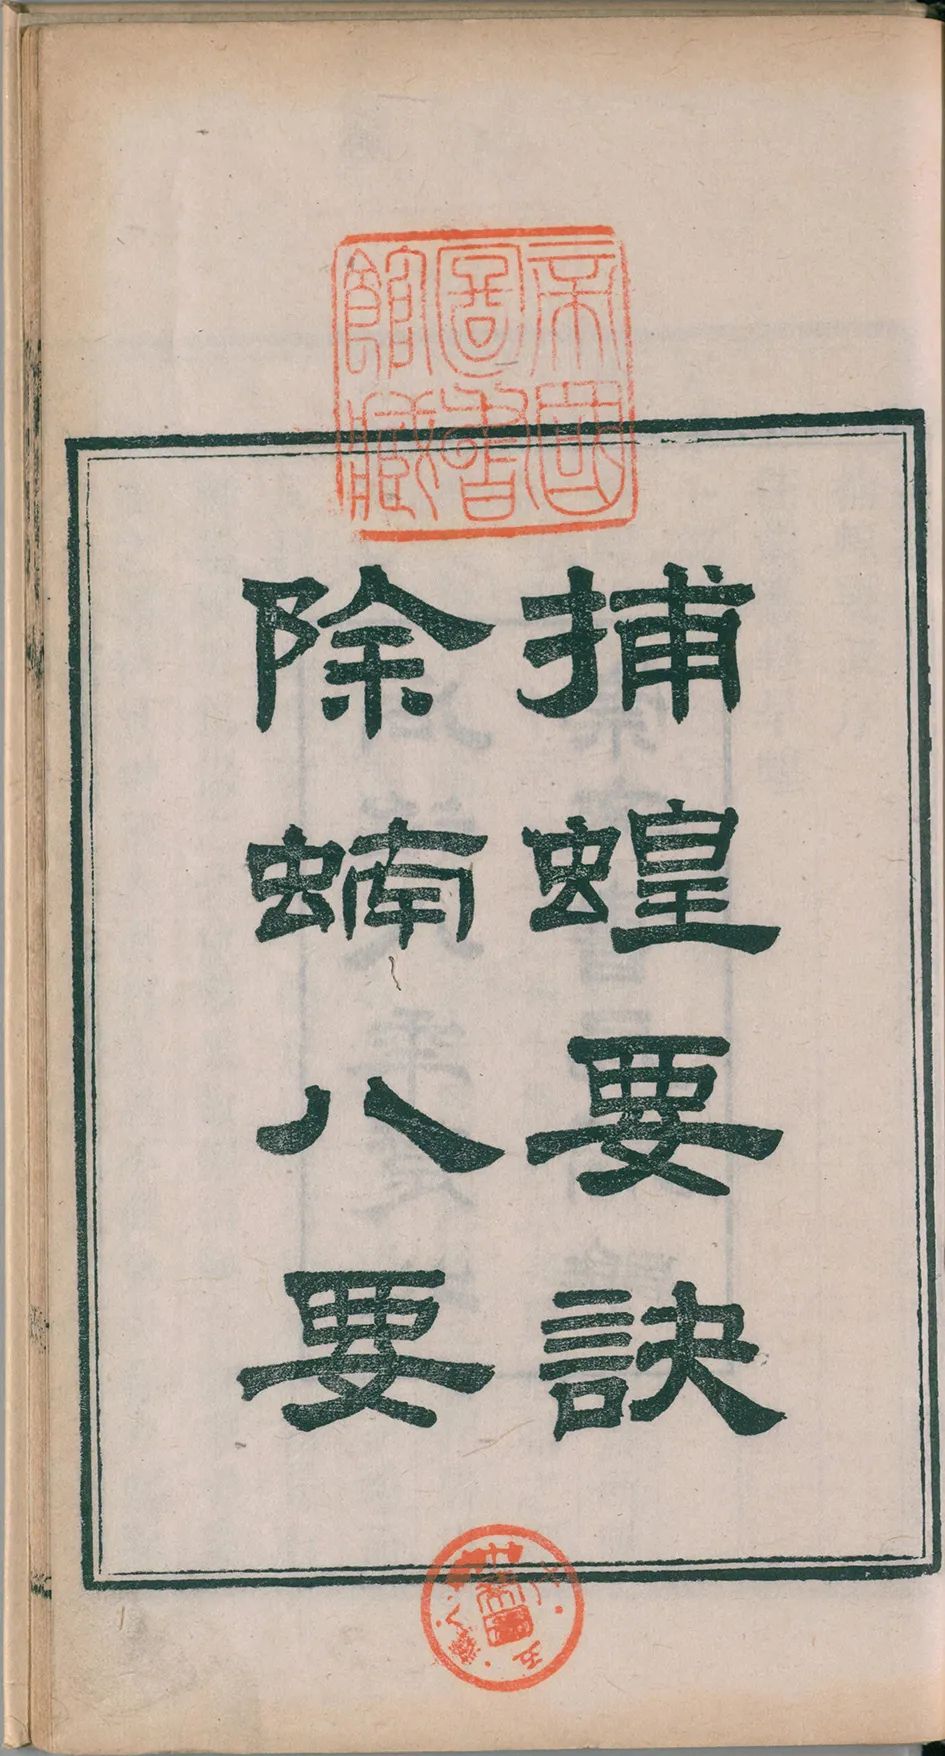 帝國
圖書
館藏
捕蝗要訣
除蝻八要